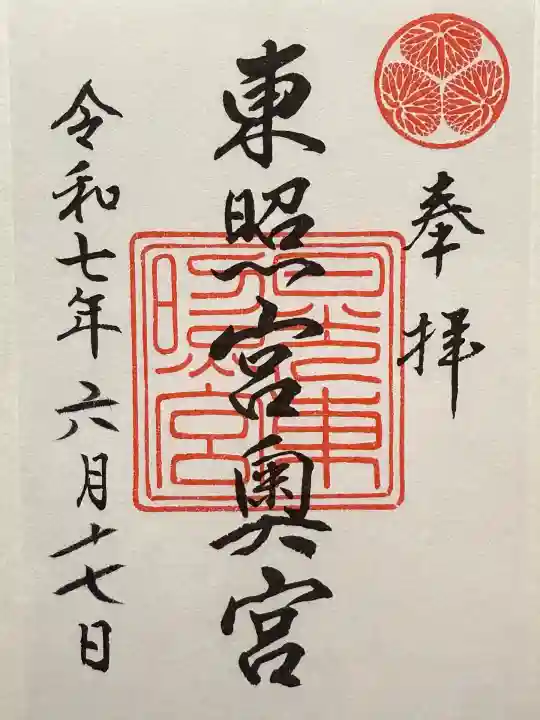 奉拝
東照宮奥宮
日光東照宮
令和七年六月十七日